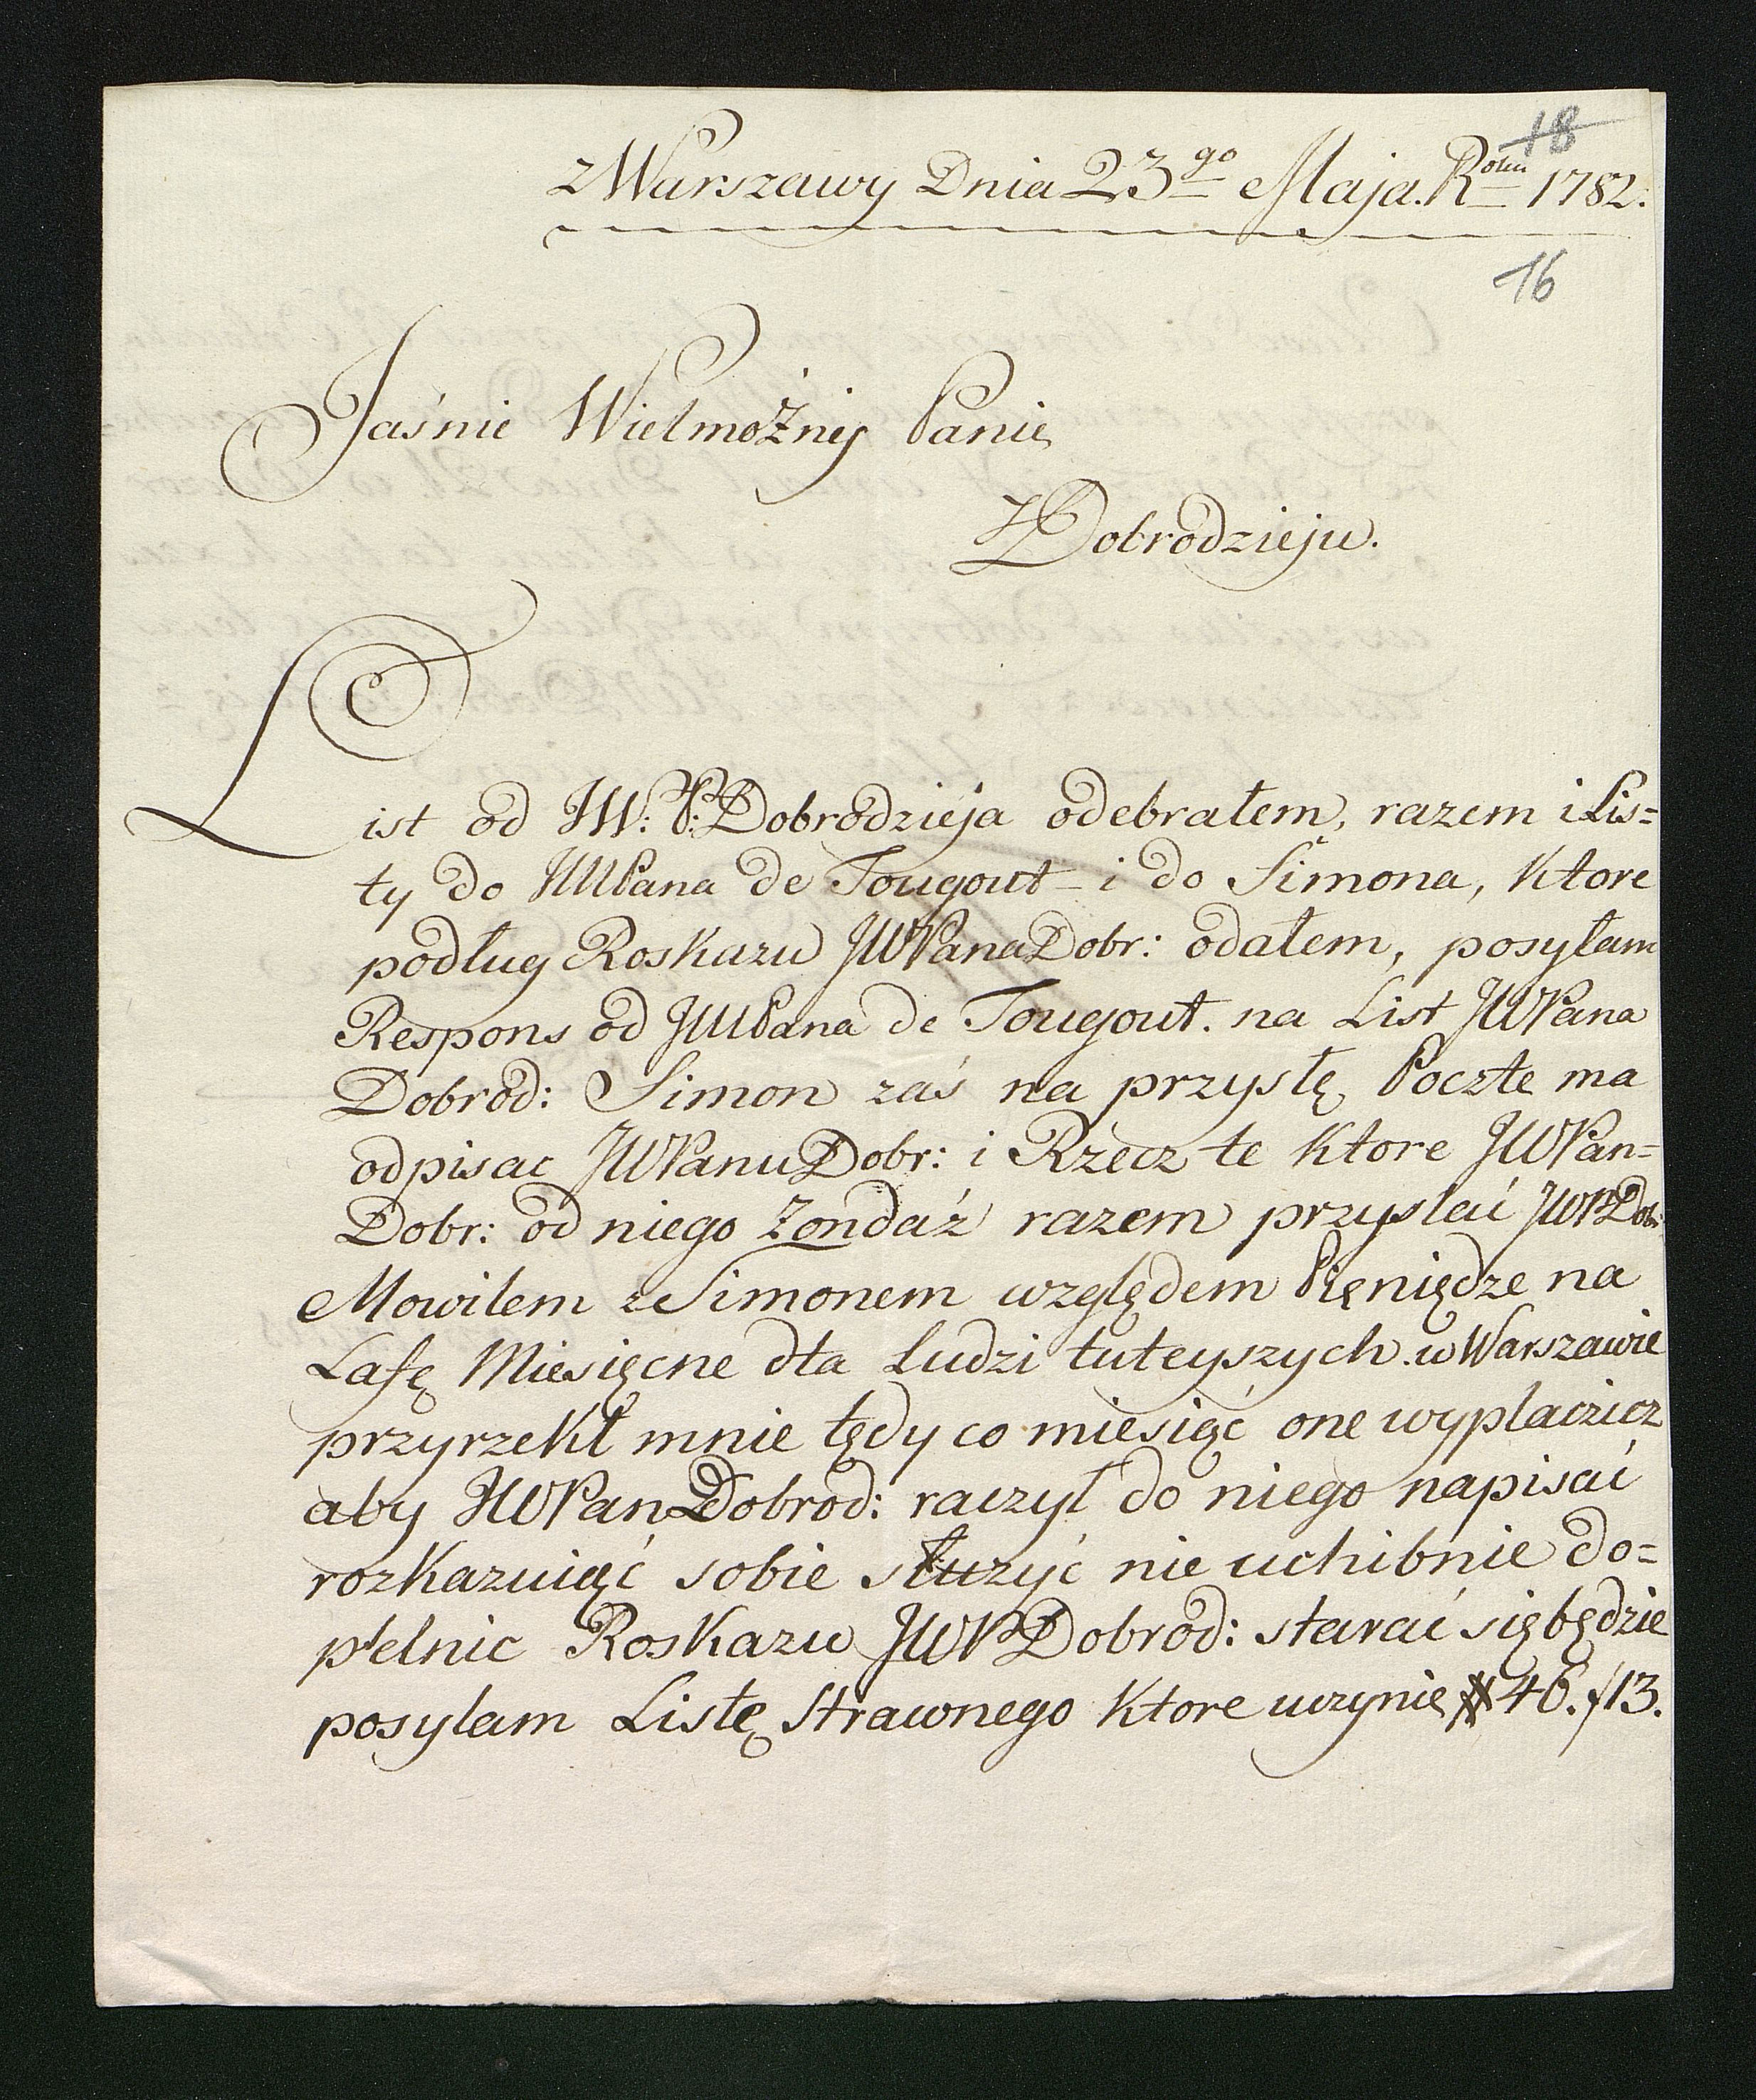 18
z Warszawy Dnia 23go Maja. Roku 1782.
16
Jaśnie Wielmożnij Panie
Dobrodzieju.
List od JW: P: Dobrodzieja odebrałem, razem i Lis=
ty do JWPana de Tougout i do Simona, Ktore
podług Roskazu JWPana Dobr: odałem, posyłam
Respons od JWPana de Tougout. na List JWPana
Dobrod: Simon zaś na przysłę Poczte ma
odpisac JWPanu Dobr: i Rzecz te Ktore JWPan=
Dobr: od niego Zondaź razem przysłać JWP Dobr:
Mowilem z Simonem względem Pięniędze na
Lafę Miesięcne dła ludzi tuteyszych w Warszawie
przyrzekł mnie tędy co miesiąć one wyplaczicz
aby JWPan Dobrod: raczył do niego napisać
rozKazuiąć sobie słuzyć nie uchibnie do=
pełnic RosKazu JWP Dobrod: starać się będzie
posylam Listę Strawnego Ktore uczynię # 46. f 13.